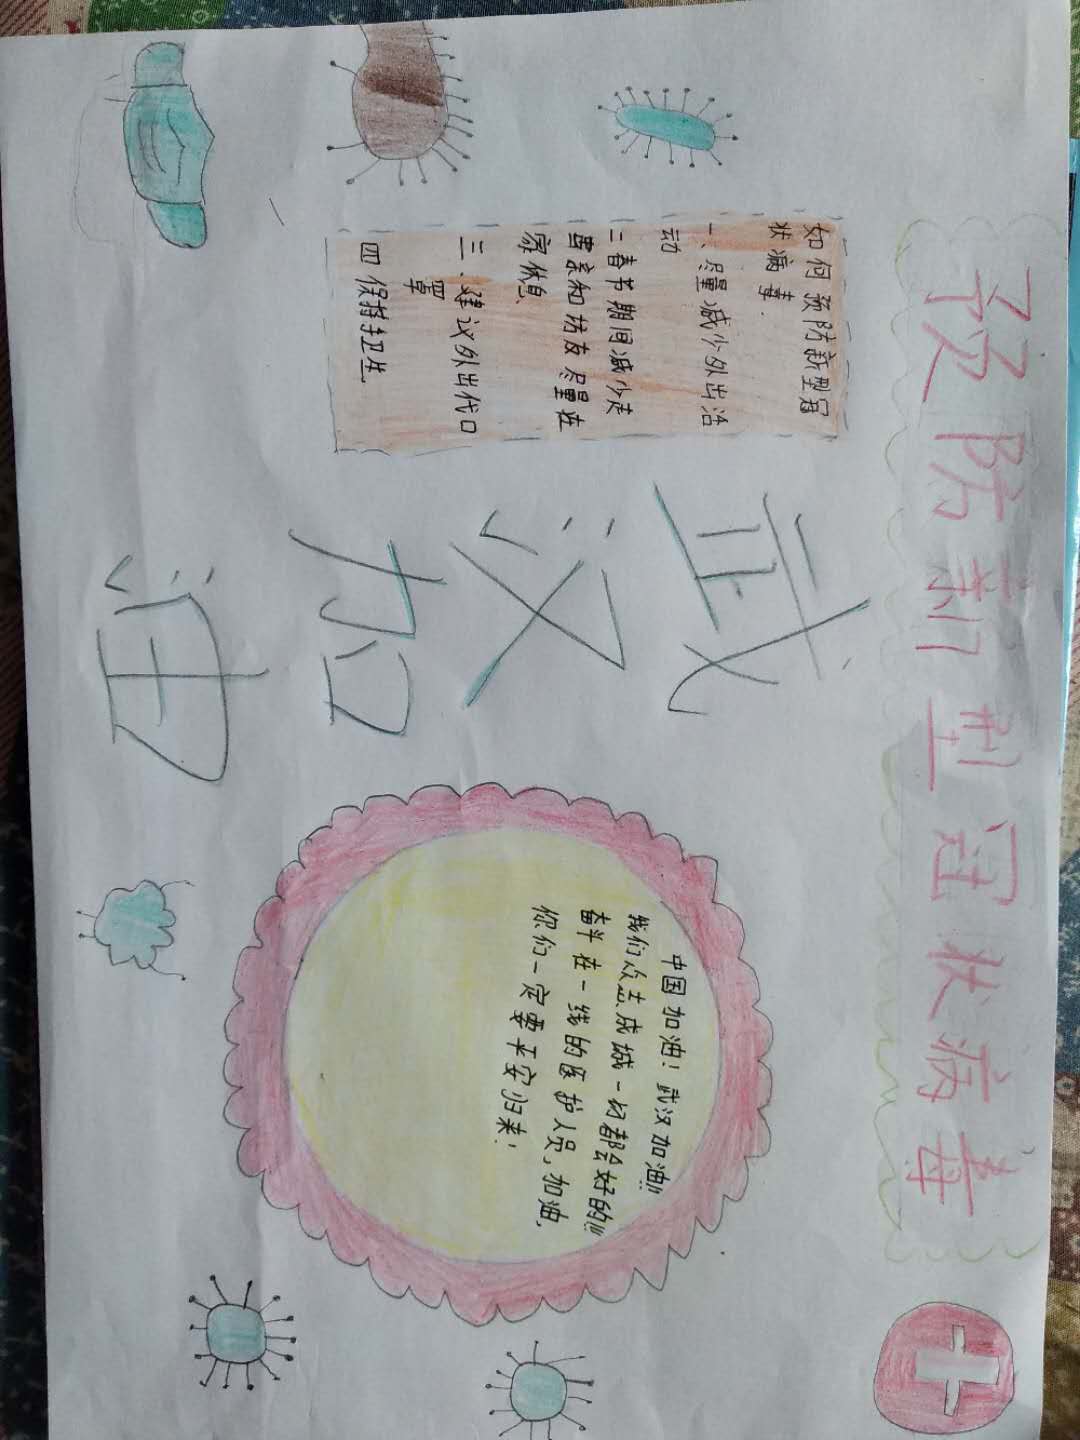 预防新型冠状病毒
如何预防新型冠
状病毒.
一、尽量减少外出活
动
二春节期间减少走
家休息
三、建议外出代口
罩
四保持手卫生
武
汉
加
油
中国加油！武汉加油!!
我们众志成城一切都会好的!!!
奋斗在一线的医护人员,加油,
你们一定要平安归来！